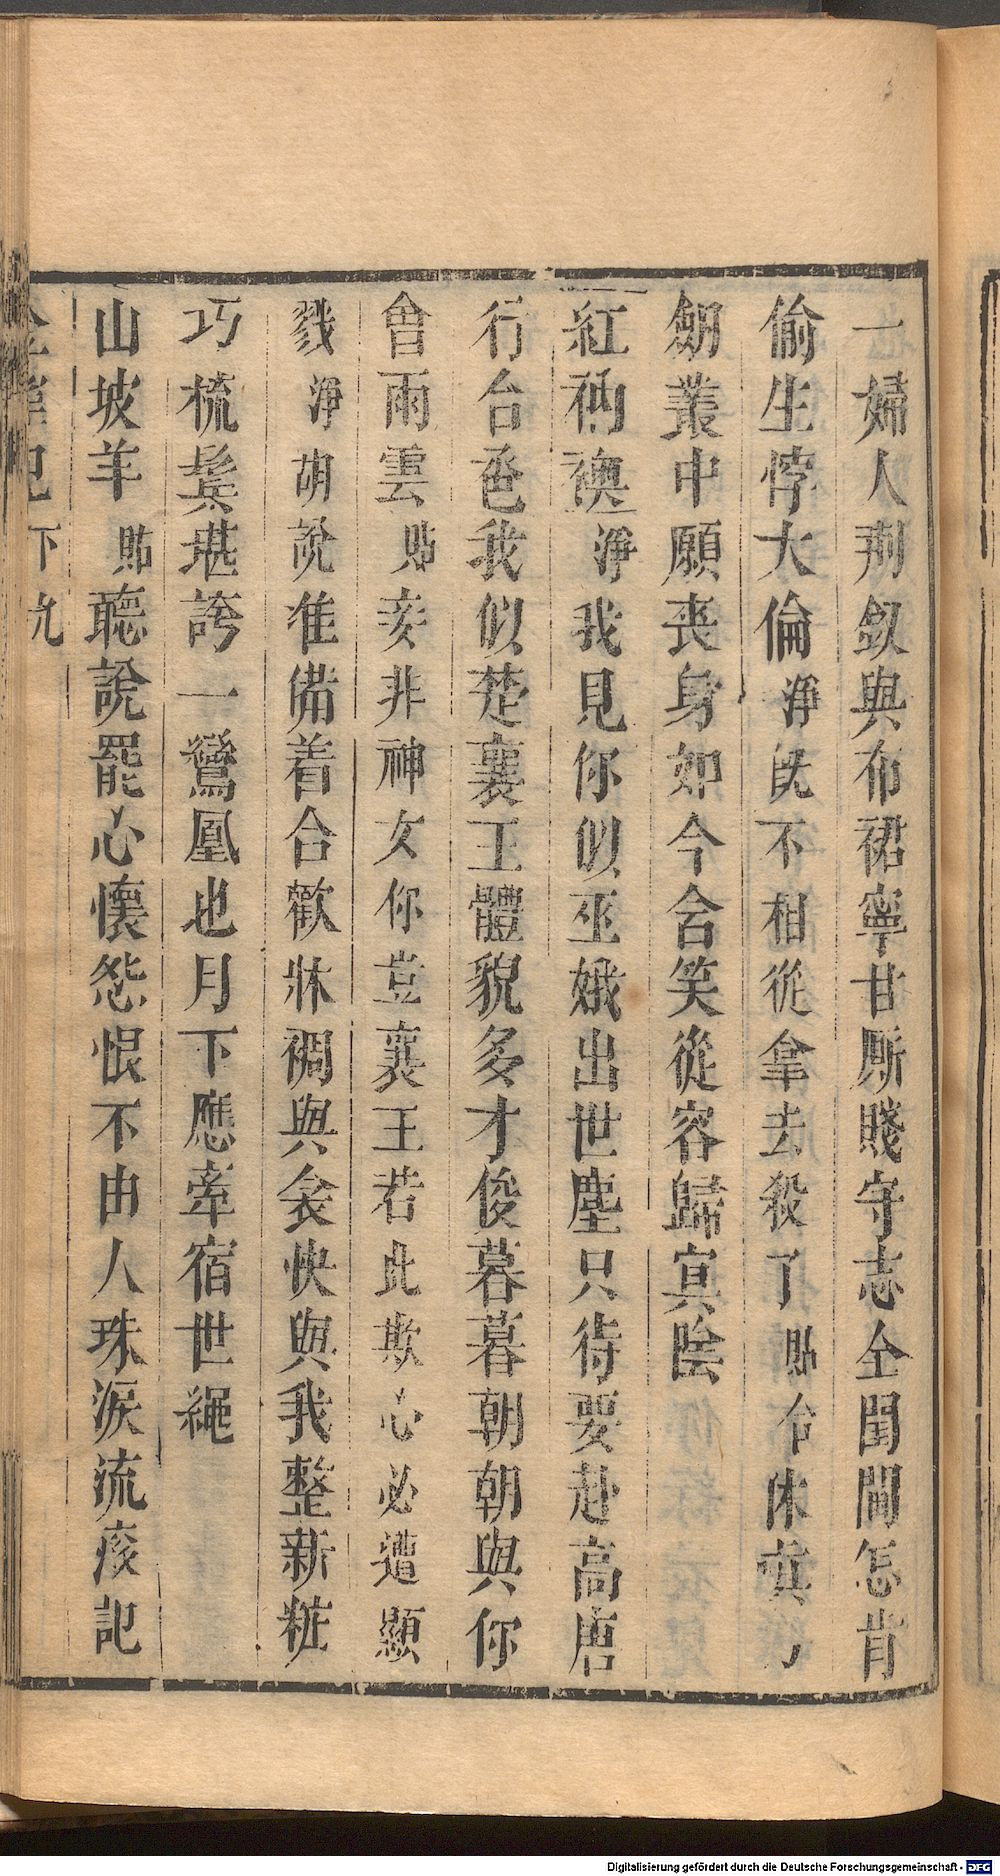 一婦人荆釵與布裙寧甘厮賤守志全閨閫怎肯
偷生悖大倫淨旣不相從拿去殺了貼休
劒叢中願丧身如今含笑從容歸冥隂
紅衲襖淨我見你似巫娥出世塵只待要赴高唐
行台爸我似楚襄王體貌多才俊暮暮朝朝與你
會雨雲貼妾非神女你豈襄王若此欺心必遭顯
戮淨胡說准備着合歡牀裯與衾快與我整新粧
巧梳鬓堪誇一鸞凰也月下應牽宿世繩
山坡羊貼聽說罷心懷怨恨不由人珠淚流痕記
下九
Digitalisierung gefördert durch die Deutsche Forschungsgemeinschaft - DFG